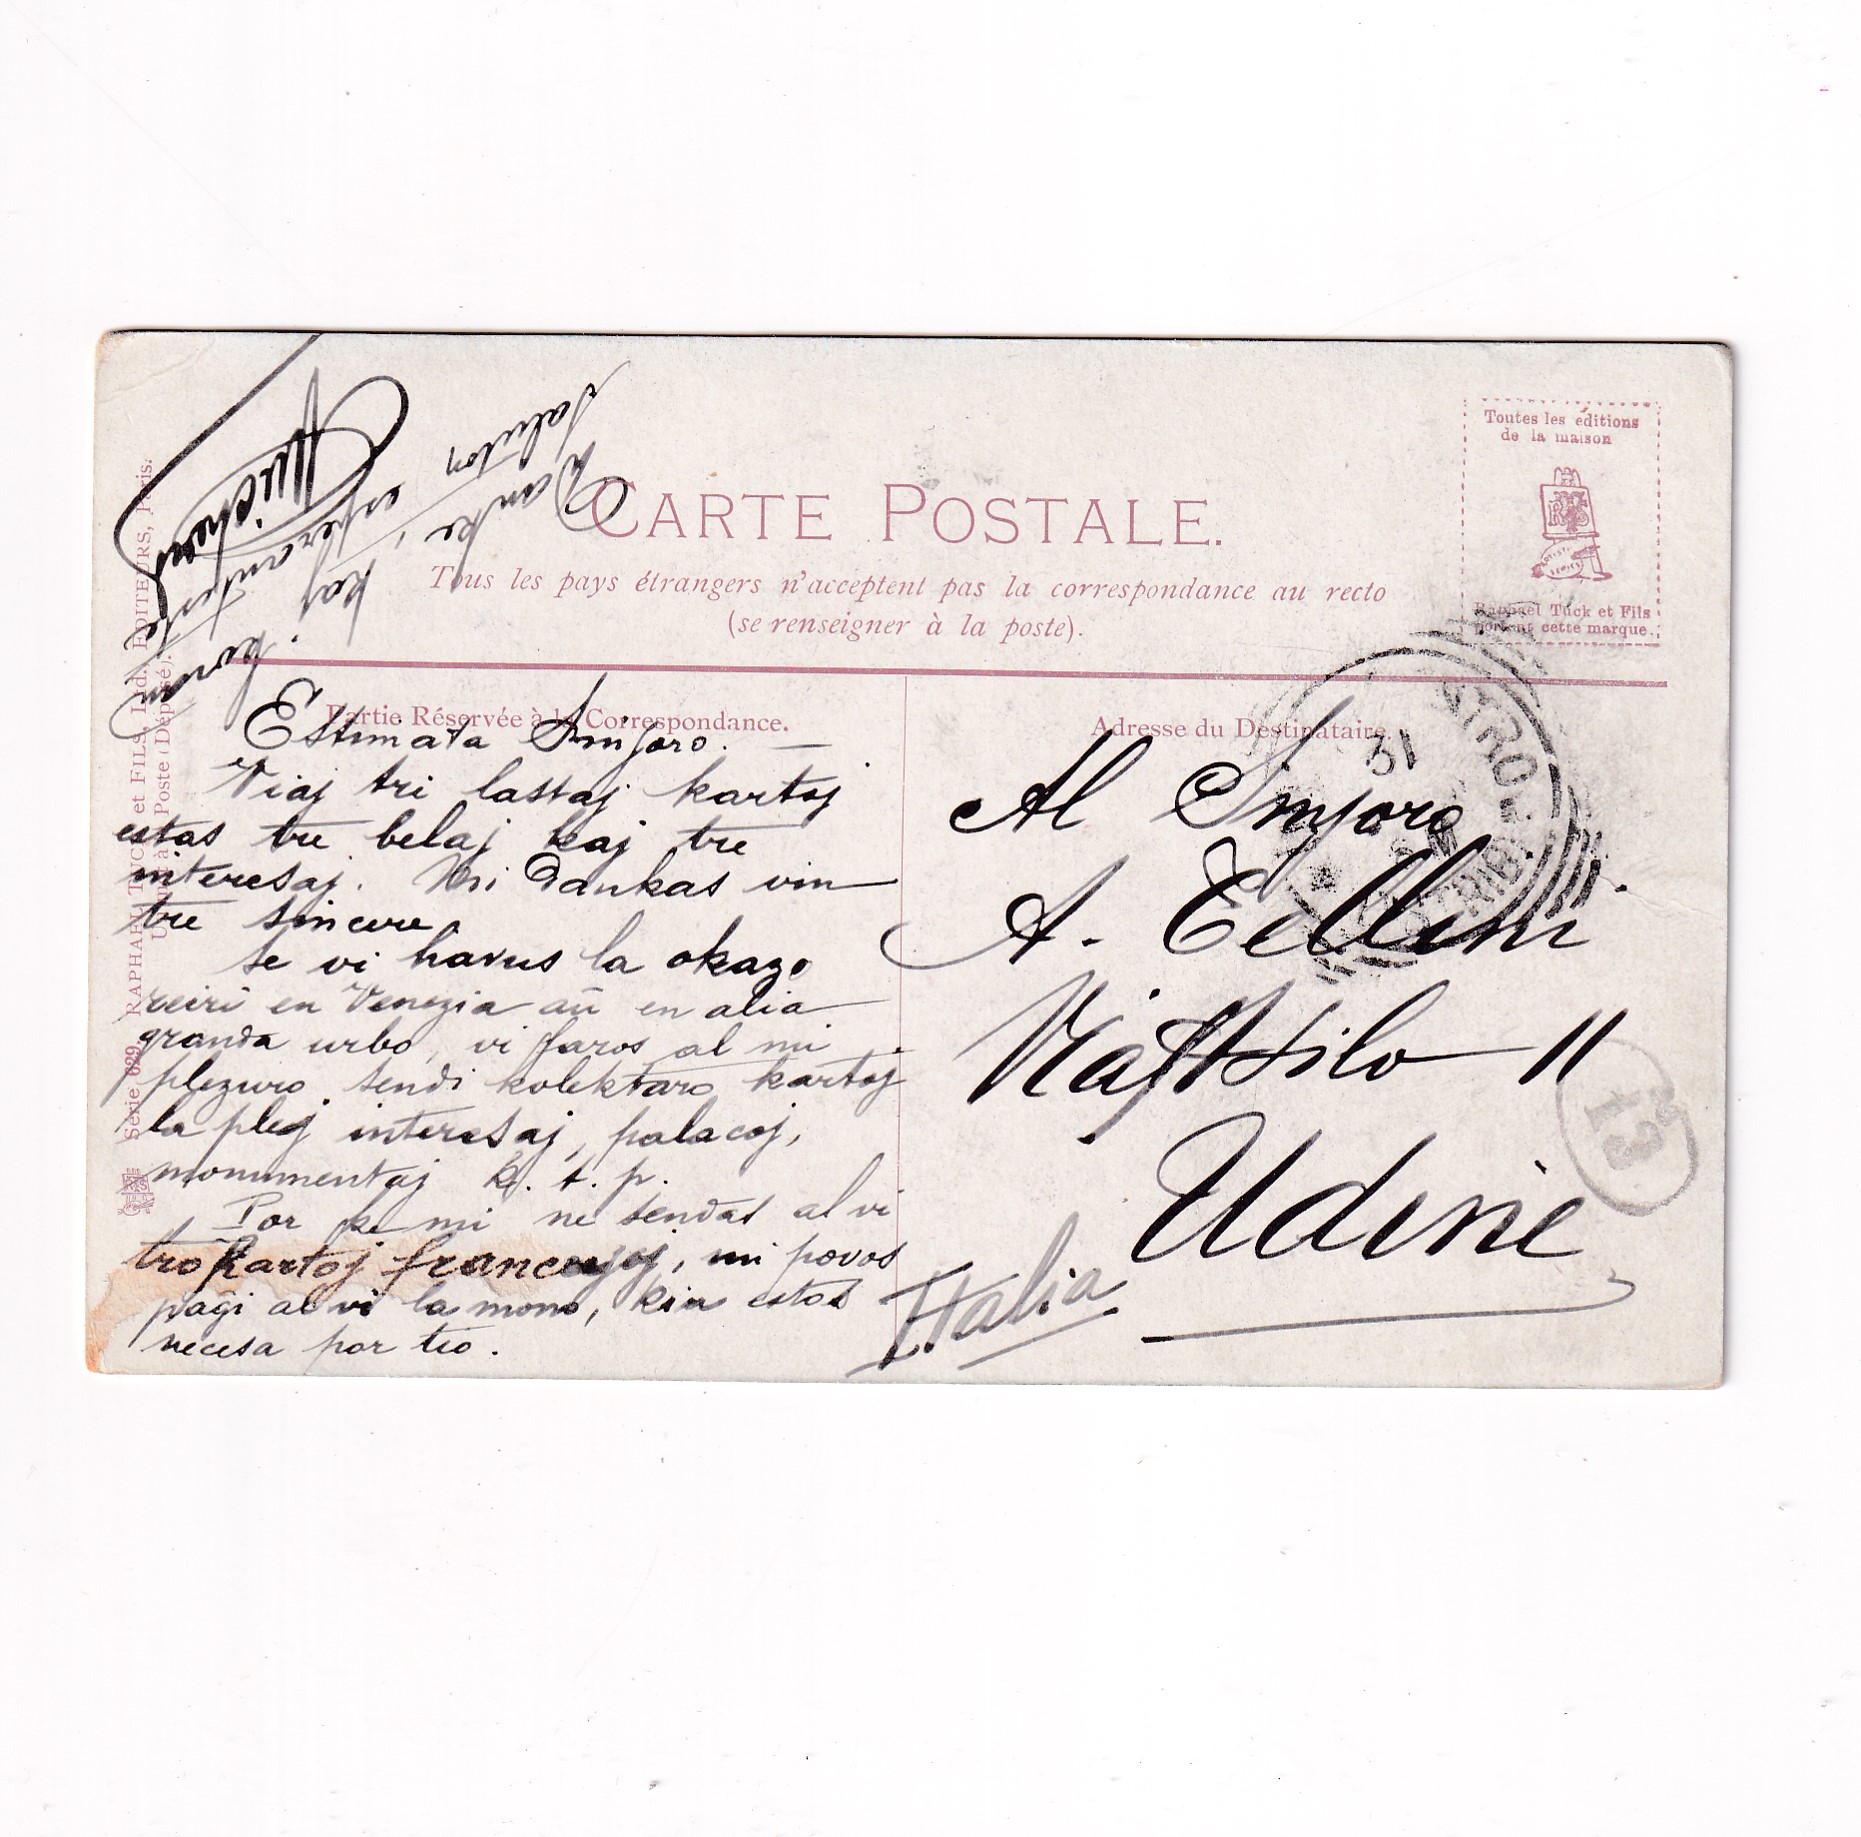 CARTE POSTALE.
Tous les pays étrangers n'acceptent pas la correspondance au recto
(se renseigner à la poste).
Toutes les éditions
de la maison
Raphael Tuck et Fils
portent cette marque.
Partie Réservée à la Correspondance.
Estimata Sinjoro. —
Viaj tri lastaj kartoj
estas tre belaj kaj tre
interesaj. Mi dankas vin
tre sincere
Se vi havus la okazo
reiri en Venezia aŭ en alia
granda urbo, vi faros al mi
plezuro sendi kolektaro kartoj
la plej interesaj, palacoj,
monumentaj k. t. p.
Por ke mi ne sendas al vi
tro kartoj francujoj, mi povos
paĝi al vi la mono, kiu estos
necesa por tio.
Danke, kaj koran
saluton esperantiste
Adresse du Destinataire.
Al Sinjoro
A. Tellini
Via Tisilo 11
Udine
Italia
31
13
Série 629. RAPHAEL TUCK et FILS, Ltd. EDITEURS, Paris.